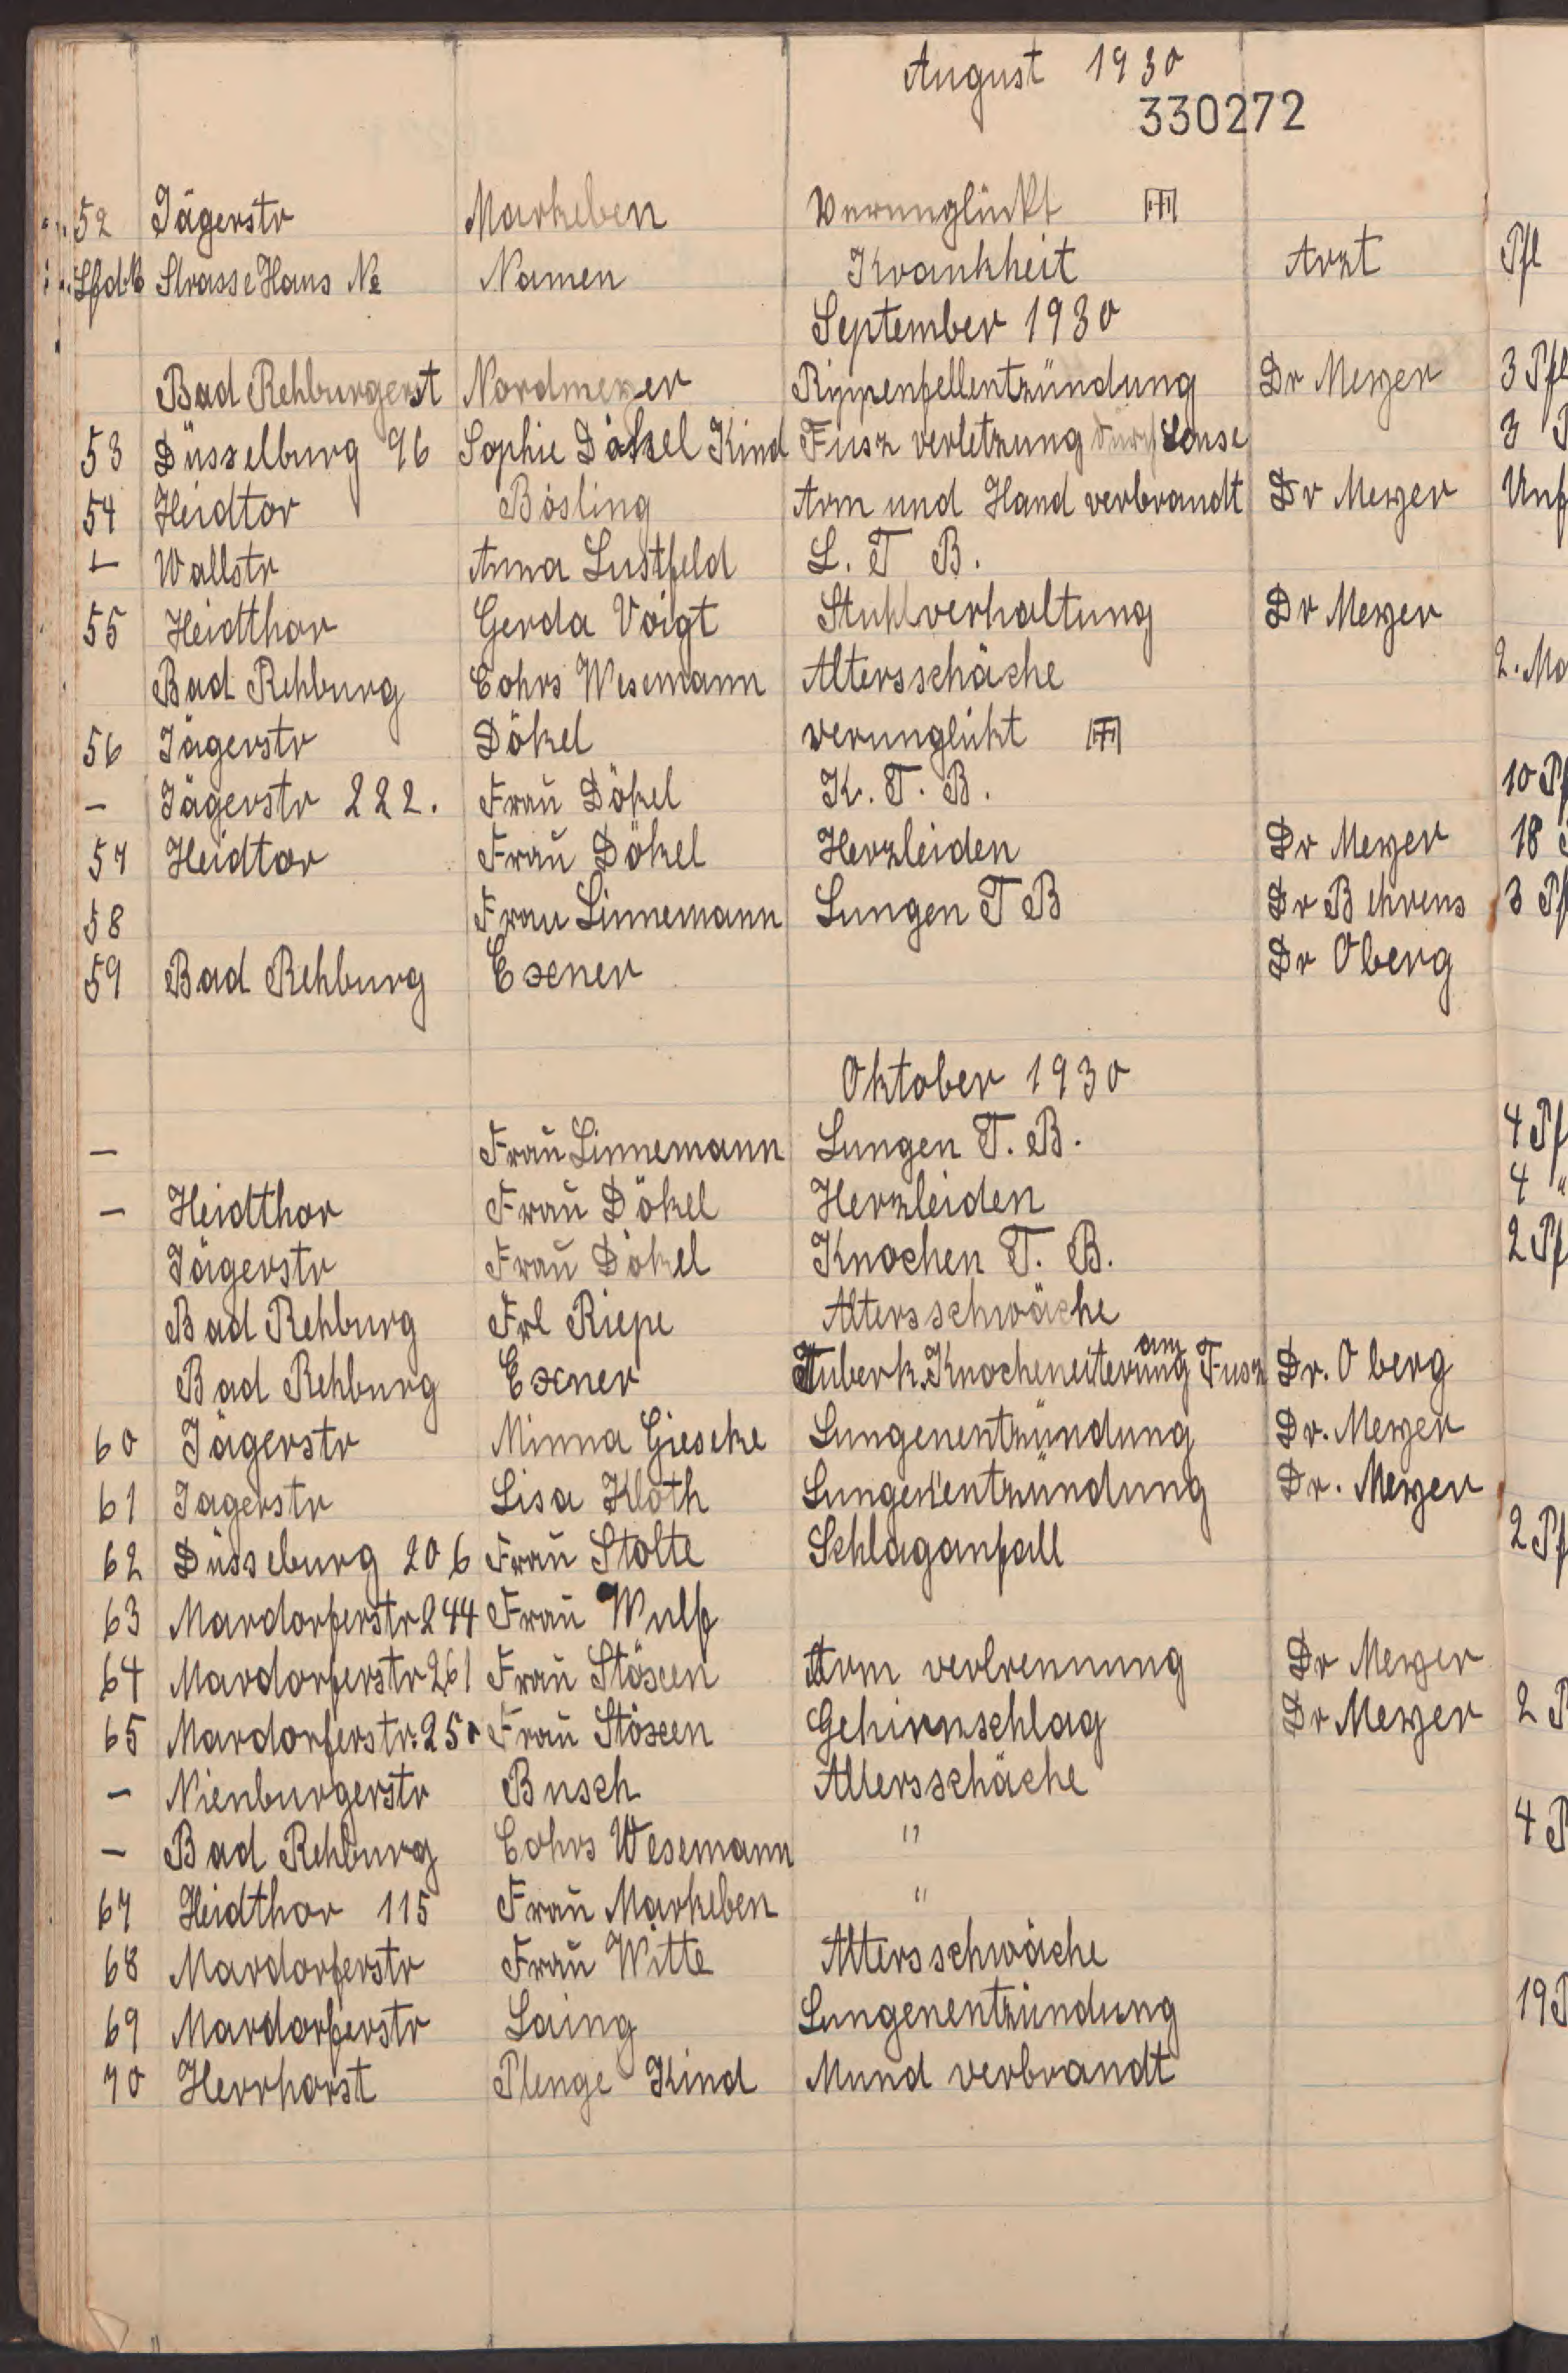 August 1930
330272
52 Jägerstr Markeben Verunglückt
Lfd.№ Strasse Haus № Namen Krankheit Arzt Pfl
September 1930
Bad Rehburgerst Nordmeyer Rippenfellentzündung Dr Meyer 3 Pfl
53 Düsselburg 96 Sophie Dökel Kind Fusz verletzung durch Sense 3
54 Heidtor Bösling Arm und Hand verbrandt Dr Meyer Unf
– Wallstr Anna Lustfeld L. T B.
55 Heidthor Gerda Voigt Stuhlverhaltung Dr Meyer
Bad Rehburg Cohrs Wesemann Altersschäche 2. Mo
56 Jägerstr Dökel verunglükt
– Jägerstr 222. Frau Dökel K. T. B. 10 Pf
57 Heidtor Frau Dökel Herzleiden Dr Meyer 18
58 Frau Linnemann Lungen T B Dr Behrens 3 Pf
59 Bad Rehburg Exner Dr Oberg
Oktober 1930
– Frau Linnemann Lungen T. B. 4 Pf
– Heidthor Frau Dökel Herzleiden 4 "
Jägerstr Frau Dökel Knochen T. B. 2 Pf
Bad Rehburg Frl Riepe Altersschwäche
Bad Rehburg Exner Tuberk. Knocheneiterung am Fusz Dr. Oberg
60 Jägerstr Minna Gieseke Lungenentzündung Dr. Meyer
61 Jagerstr Lisa Kloth Lungenentzündung Dr. Meyer
62 Düsseburg 206 Frau Stolte Schlaganfall 2 Pf
63 Mardorferstr 244 Frau Wulf
64 Mardorferstr 261 Frau Stöxen Arm verbrennung Dr Meyer
65 Mardorferstr. 250 Frau Stöxen Gehirnschlag Dr Meyer 2 P
– Nienburgerstr Busch Altersschäche
– Bad Rehburg Cohrs Wesemann " 4 P
67 Heidthor 115 Frau Markeben "
68 Mardorferstr Frau Witte Altersschwäche
69 Mardorferstr Laing Lungenentzündung 19 P
70 Herrhorst Plenge Kind Mund verbrandt